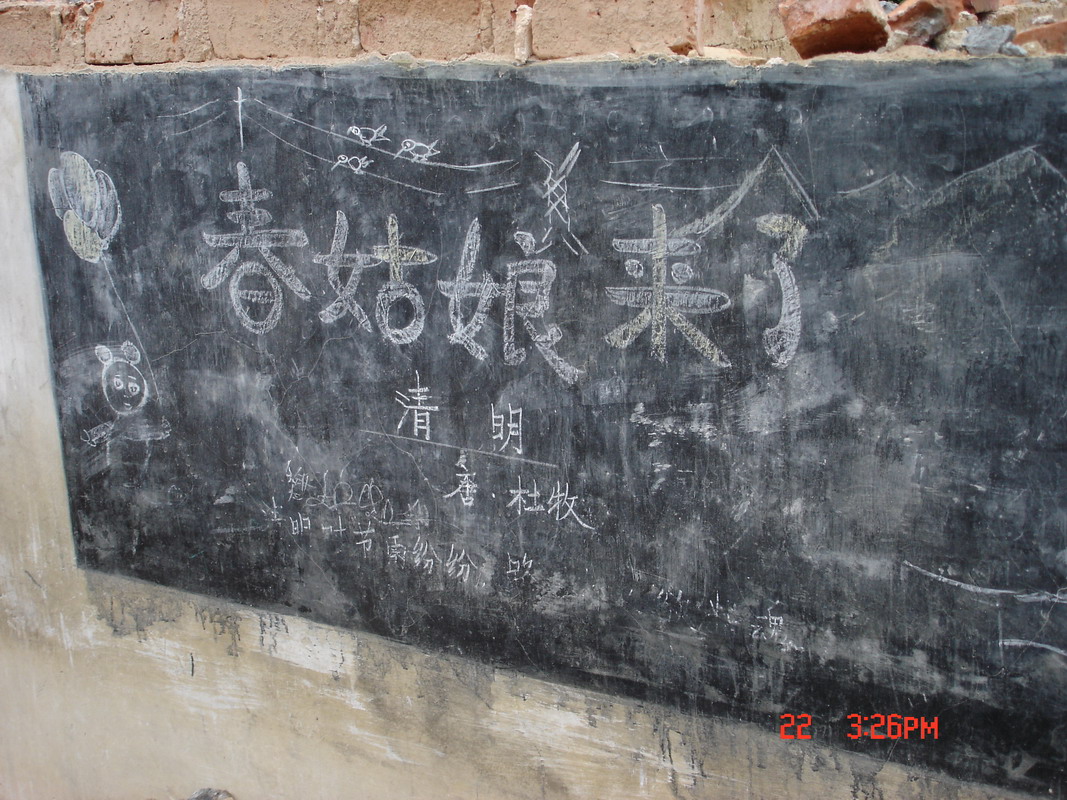 春姑娘来了
清明
唐.杜牧
明时节雨纷纷 欲
魂
22 3:26PM